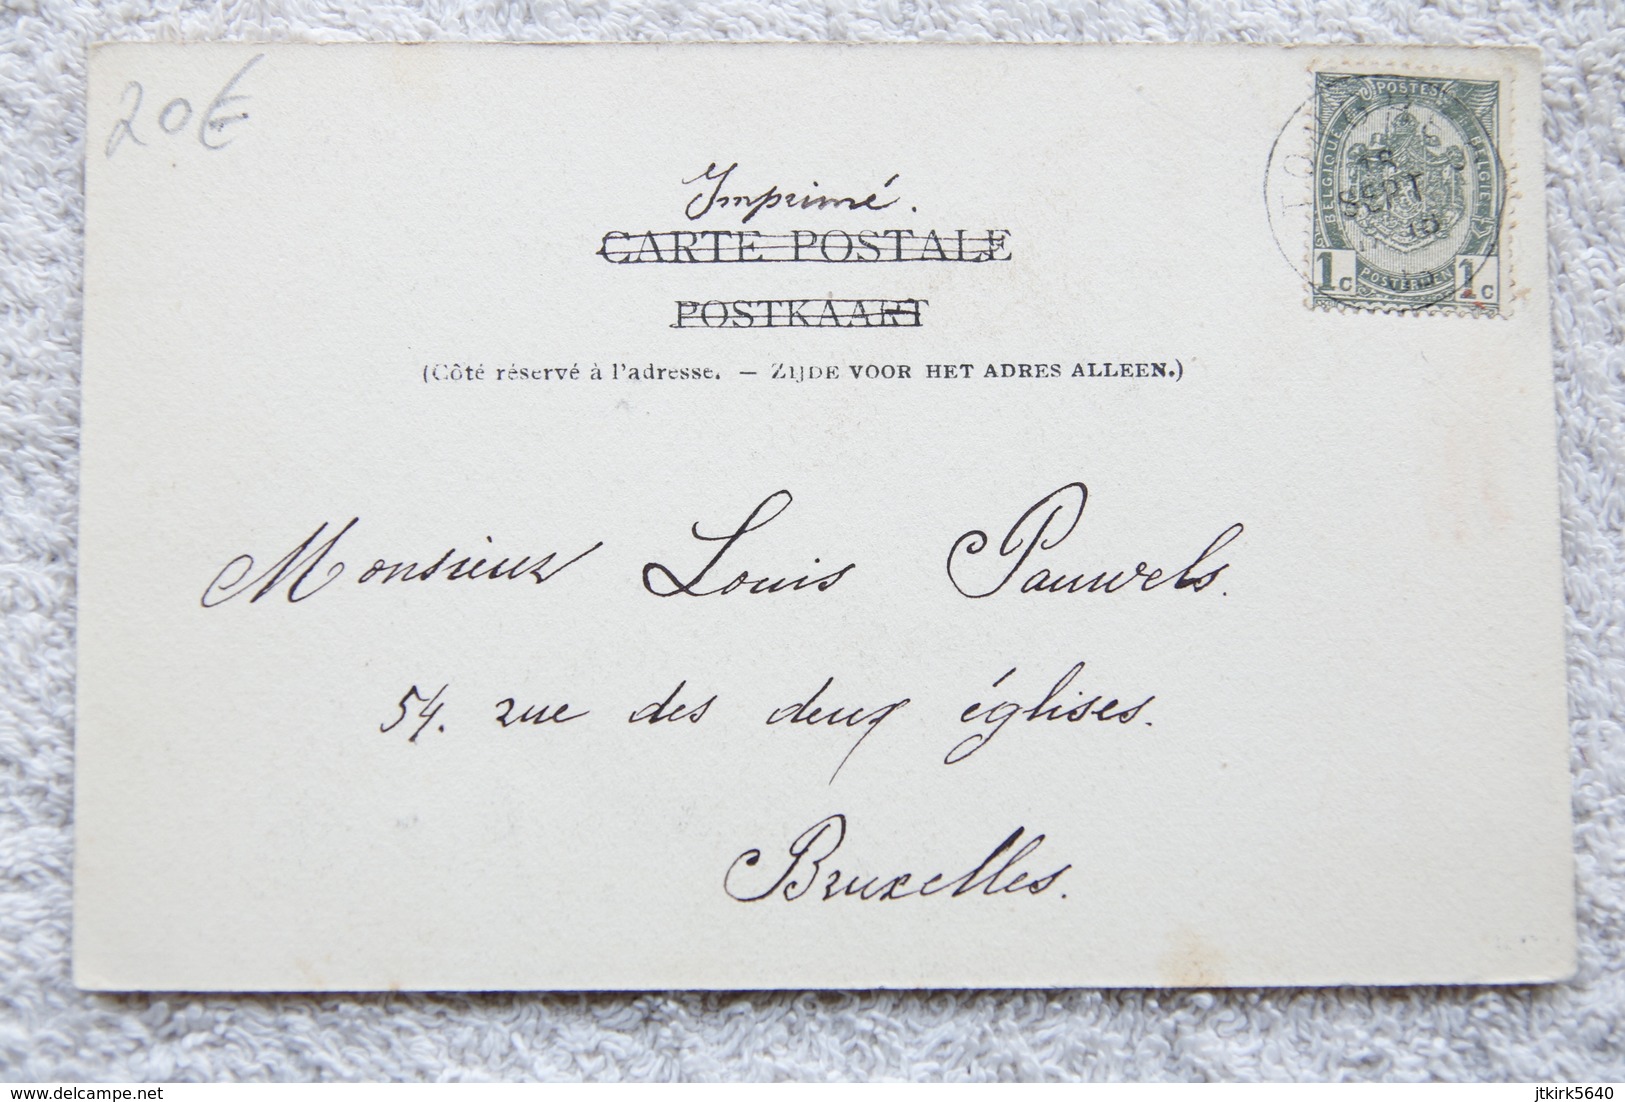 20€
Imprimé.
CARTE POSTALE
POSTKAART
(Côté réservé à l'adresse. — ZIJDE VOOR HET ADRES ALLEEN.)
POSTES
BELGIQUE
BELGIE
18
SEPT
POSTERIJEN
1c 1c
Monsieur Louis Pauwels.
54. rue des deux églises.
Bruxelles.
delcampe.net
jtkirk5640